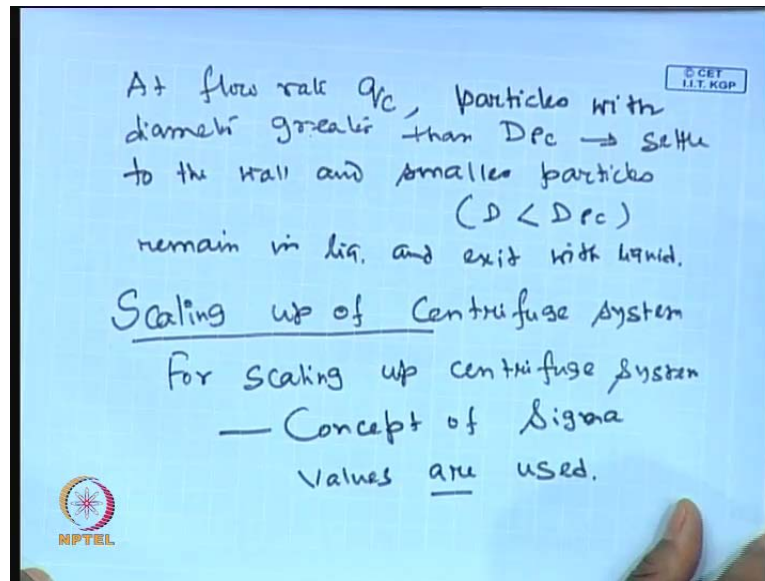 © CET
I.I.T. KGP
At flow rate qc, particles with
diameter greater than Dpc → settle
to the wall and smaller particles
(D < Dpc)
remain in liq. and exit with liquid.
Scaling up of Centrifuge system
For scaling up centrifuge system
— Concept of Sigma
values are used.
NPTEL